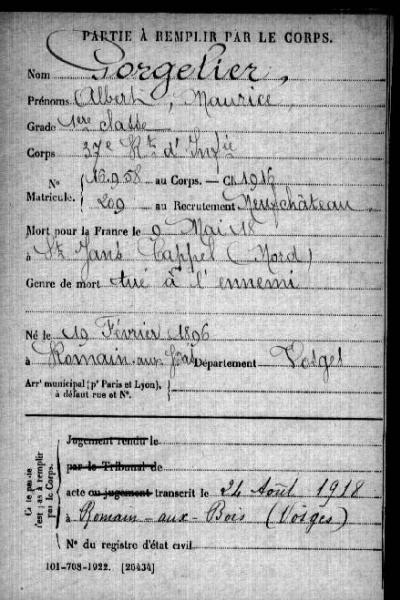 PARTIE À REMPLIR PAR LE CORPS.
Nom Gorgelier,
Prénoms Albert, Maurice,
Grade 1ère classe
Corps 37e Rt d'Infie
N° 16.958 au Corps. — Cl. 1916
Matricule. 209 au Recrutement Neufchâteau
Mort pour la France le 9 Mai 18
à St Jans Cappel (Nord)
Genre de mort tué à l'ennemi
Né le 19 Février 1896
à Romain-aux- Département Vosges
Arrt municipal (pr Paris et Lyon),
à défaut rue et N°.
Cette partie
n'est pas à remplir
par le Corps.
Jugement rendu le
par le Tribunal de
acte ou jugement transcrit le 24 Août 1918
à Romain-aux-Bois (Vosges)
N° du registre d'état civil
101-708-1922. [20434]